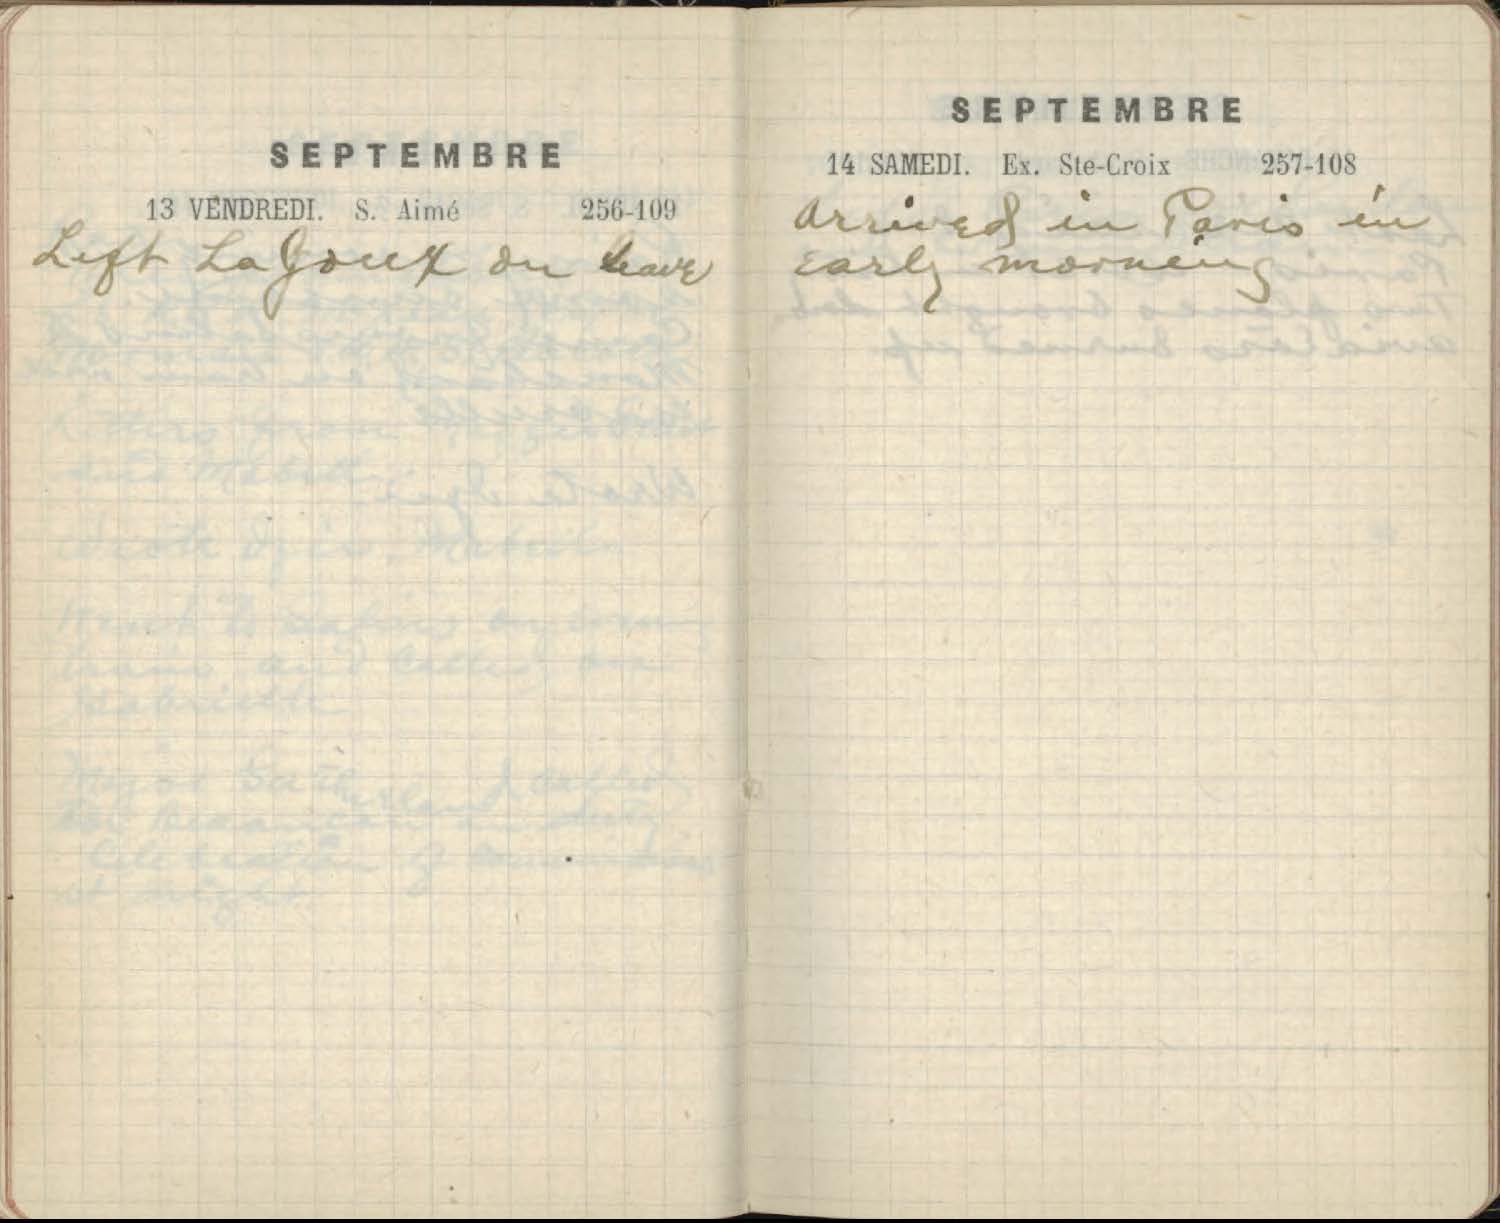 SEPTEMBRE
13 VENDREDI. S. Aimé 256-109
Left LaJoux on leave
SEPTEMBRE
14 SAMEDI. Ex. Ste-Croix 257-108
Arrived in Paris in
early morning